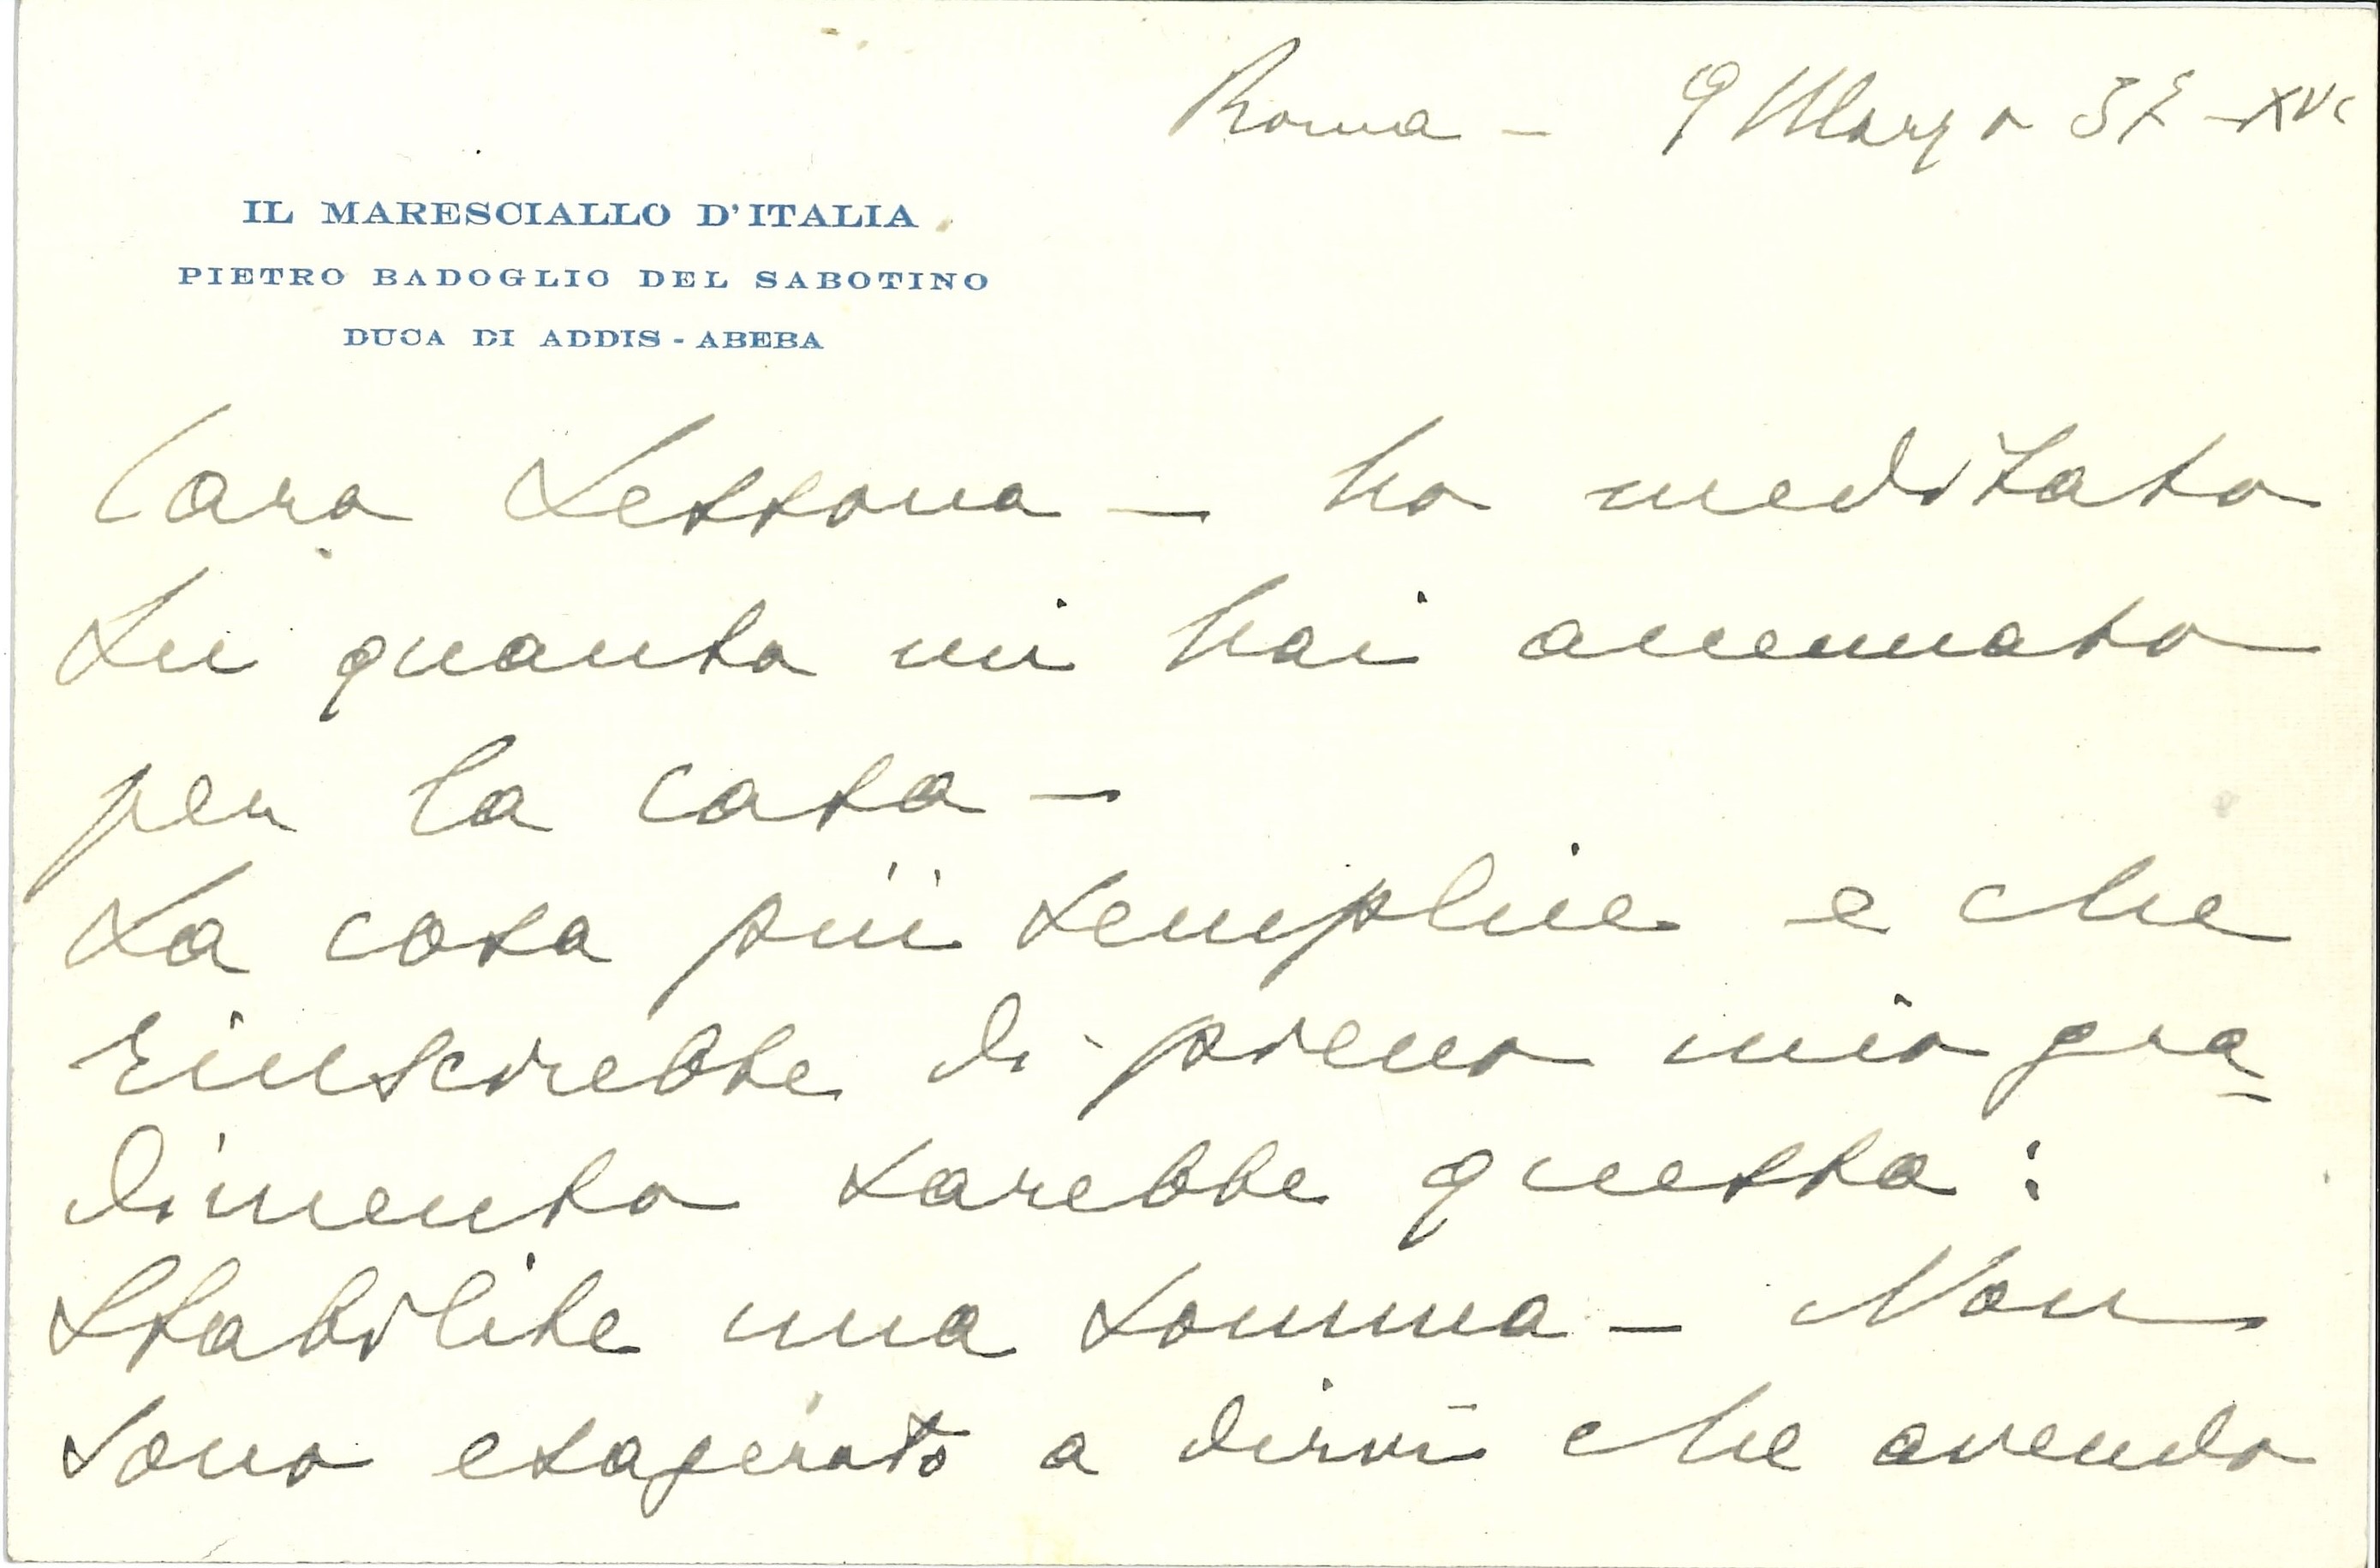 Roma - 9 Marzo 37 - XV
IL MARESCIALLO D'ITALIA
PIETRO BADOGLIO DEL SABOTINO
DUCA DI ADDIS - ABEBA
Caro Lessona - ho meditato
su quanto mi hai accennato
per la casa -
La cosa più semplice e che
riuscirebbe di pieno mio gra-
dimento sarebbe questa :
Stabilite una somma - Non
sono esagerato a dirvi che avendo